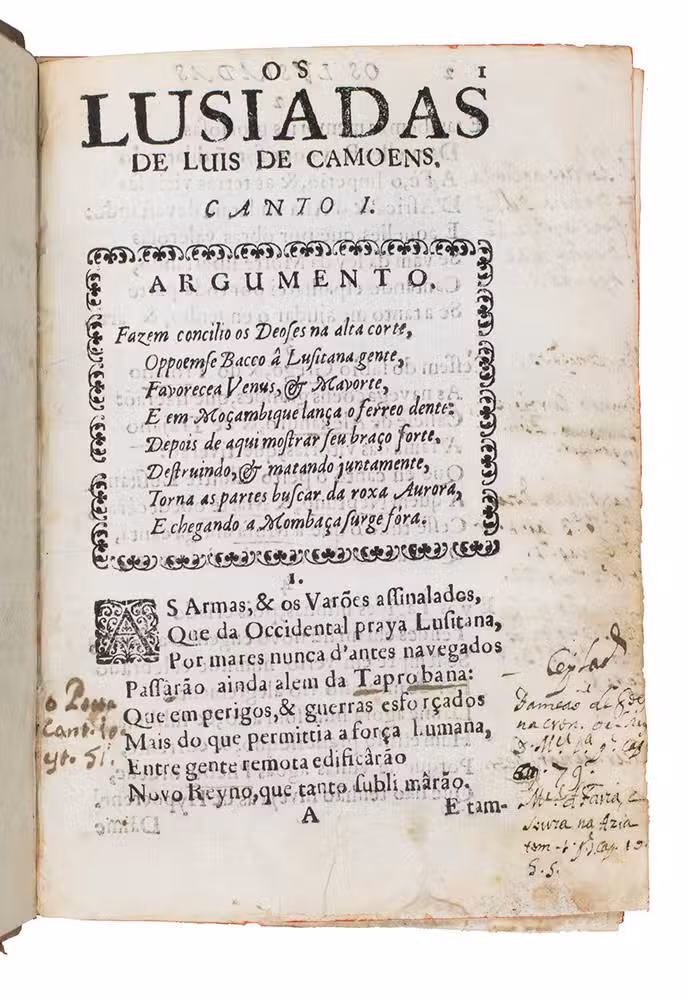 OS 1
LUSIADAS
DE LUIS DE CAMOENS.
CANTO I.
ARGUMENTO.
Fazem concilio os Deoses na alta corte,
Oppoemse Bacco â Lusitana gente,
Favorecea Venus, & Mavorte,
E em Moçambique lança o ferreo dente:
Depois de aqui mostrar seu braço forte,
Destruindo, & matando juntamente,
Torna as partes buscar da roxa Aurora,
E chegando a Mombaça surge fóra.
1.
AS Armas, & os Varões assinalados,
Que da Occidental praya Lusitana,
Por mares nunca d'antes navegados
Passàrão ainda alem da Taprobana:
Que em perigos, & guerras esforçados
Mais do que permittia a força Lumana,
Entre gente remota edificârão
Novo Reyno, que tanto sublimârão.
A E tam-
o Poeta
Cant. 10
st. 51.
Ceylaõ
Damião de
na cron.
79.
Mel. de Faria, e
Souza na Azia
tom
5.5.